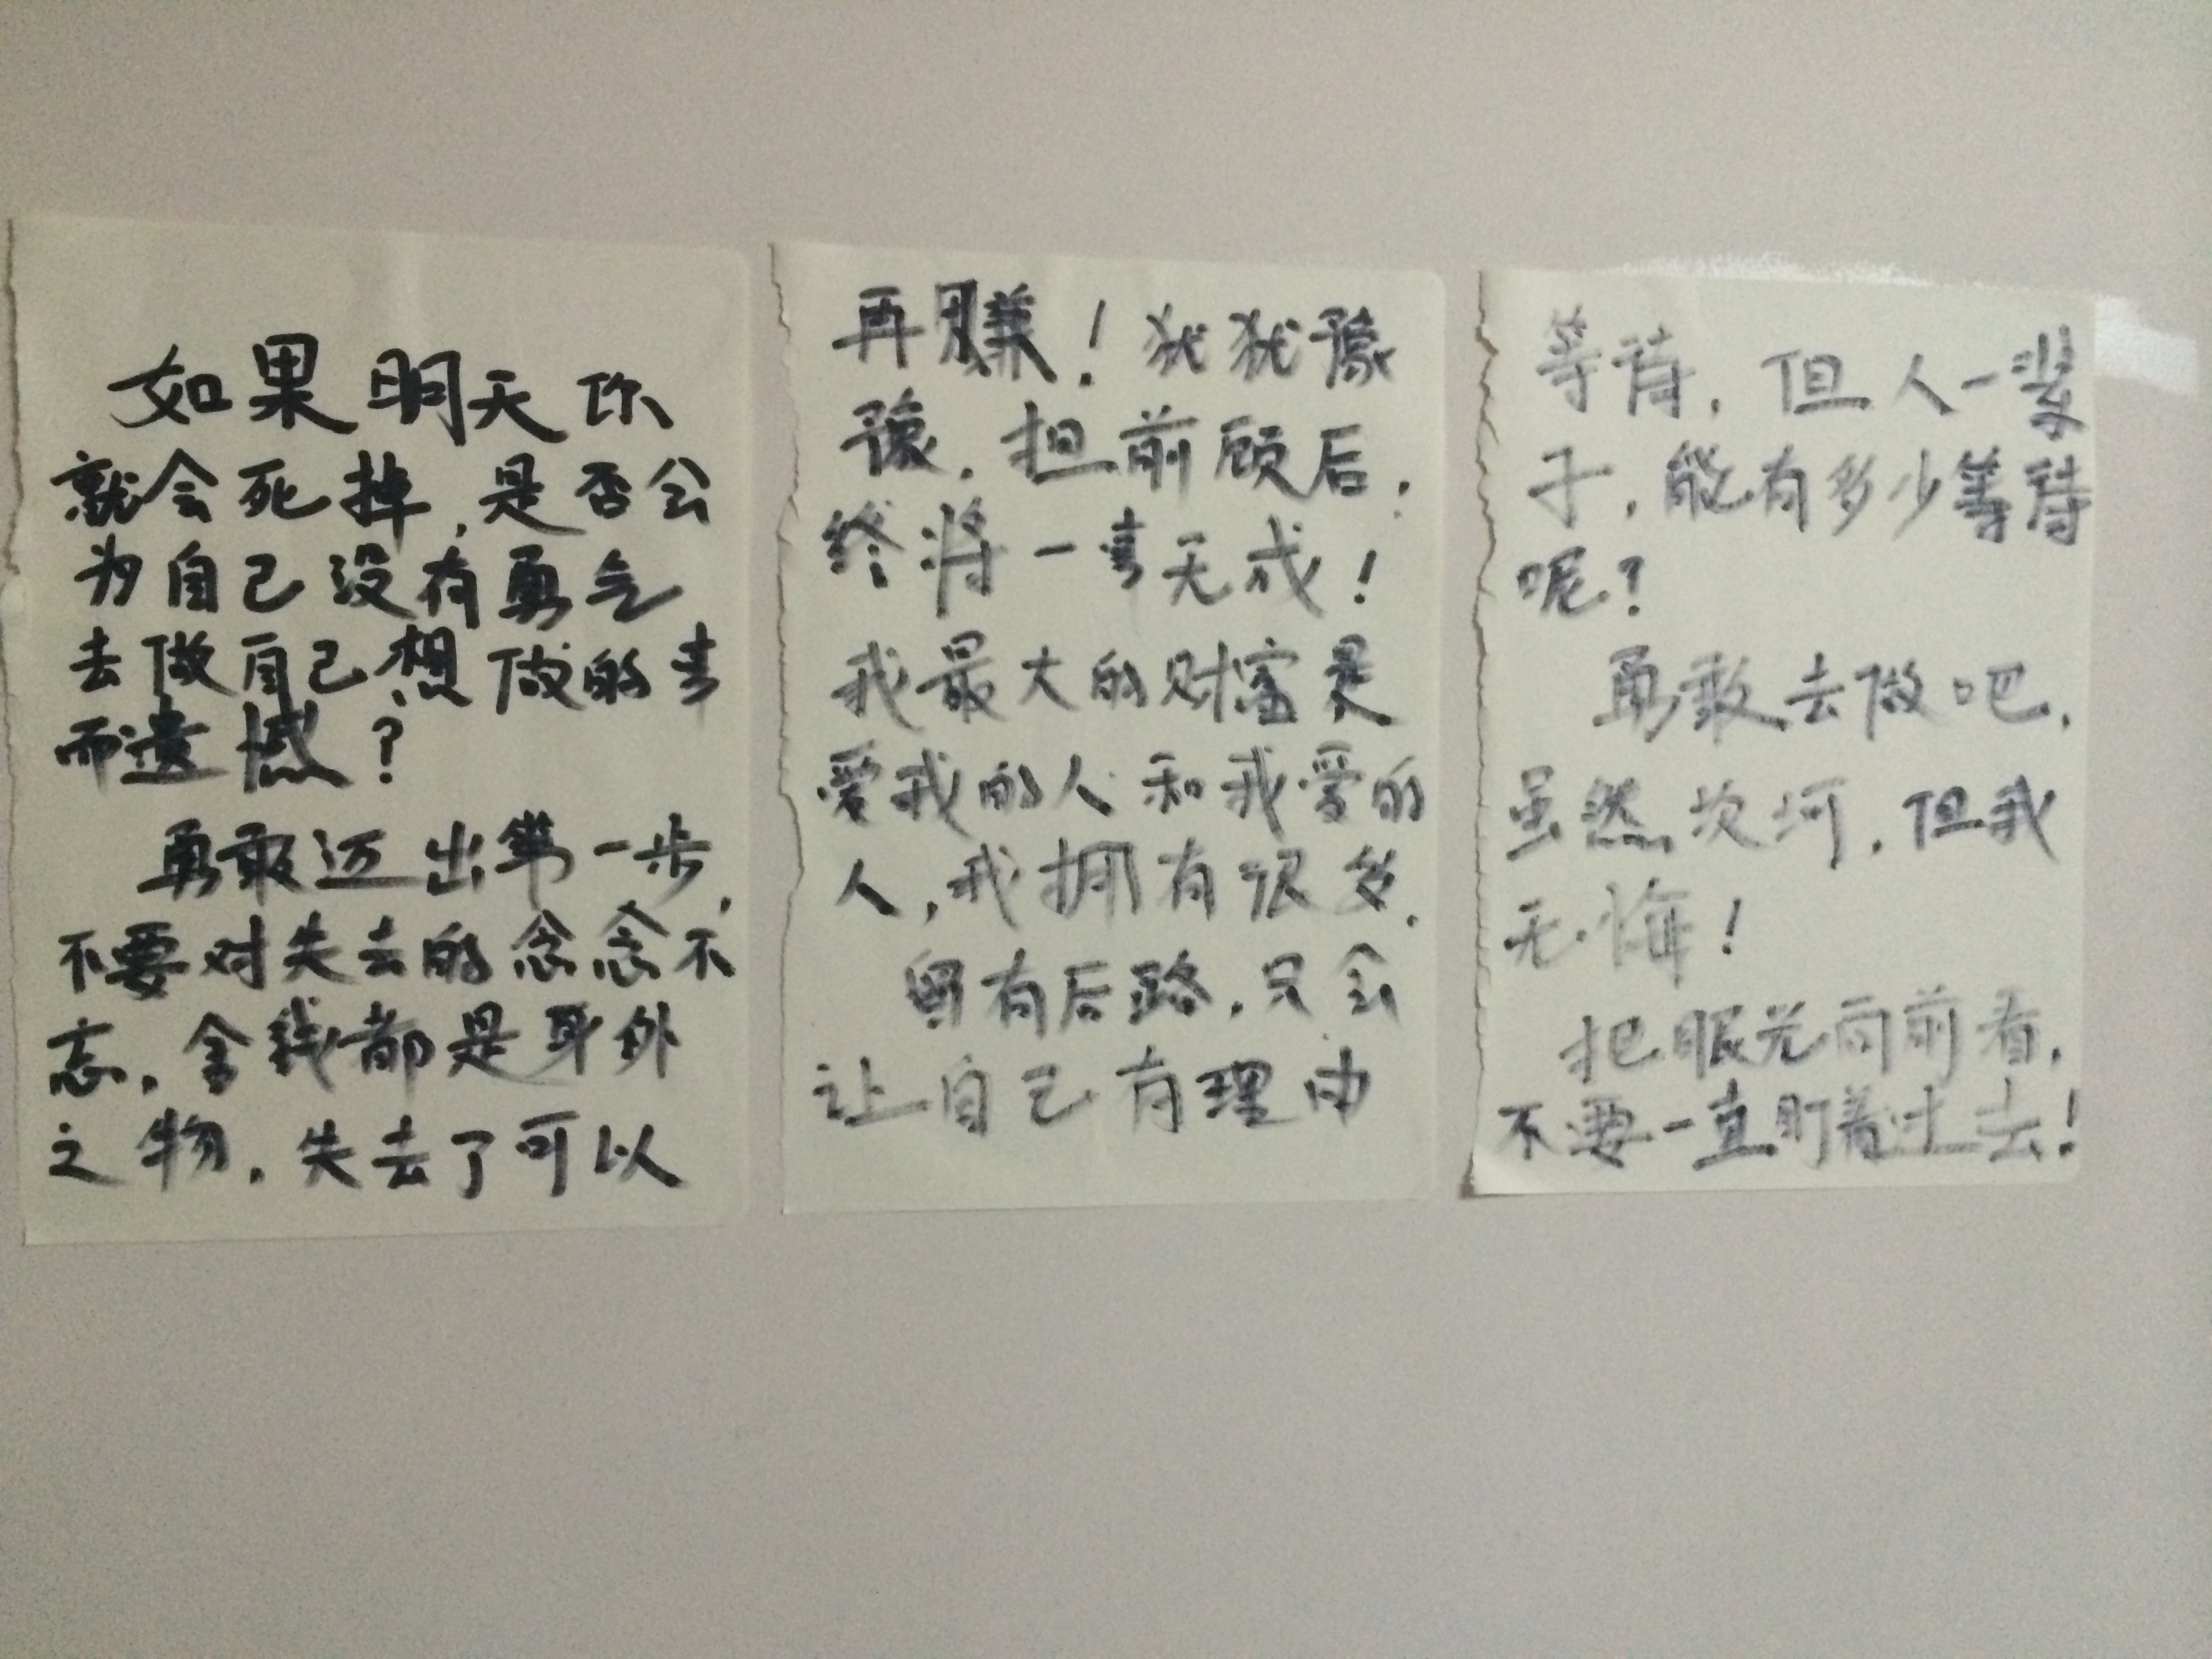 如果明天你
就会死掉,是否会
为自己没有勇气
去做自己想做的事
而遗憾?
勇敢迈出第一步,
不要对失去的念念不
忘,金钱都是身外
之物,失去了可以
再赚!犹犹豫
豫,担前顾后,
终将一事无成!
我最大的财富是
爱我的人和我爱的
人,我拥有很多.
留有后路,只会
让自己有理由
等待,但人一辈
子,能有多少等待
呢?
勇敢去做吧,
虽然坎坷,但我
无悔!
把眼光向前看,
不要一直盯着过去!